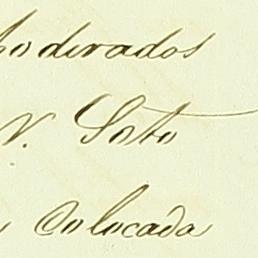 Moderados
V. Soto
colocada